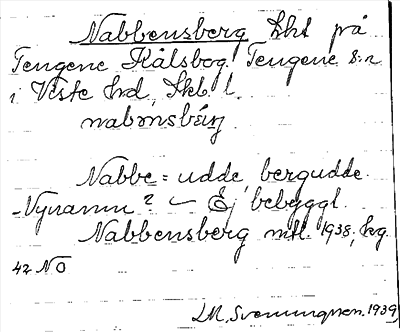 Nabbensberg Lht på
Tengene Kålsbog Tengene s:n
i Viste hrd, Skbl.
Nabbe = udde, bergudde.
-Vynamn? Ej bebyggt.
Nabbensberg mtl. 1938; kg.
42 NO
LM. Svenungsson. 1939